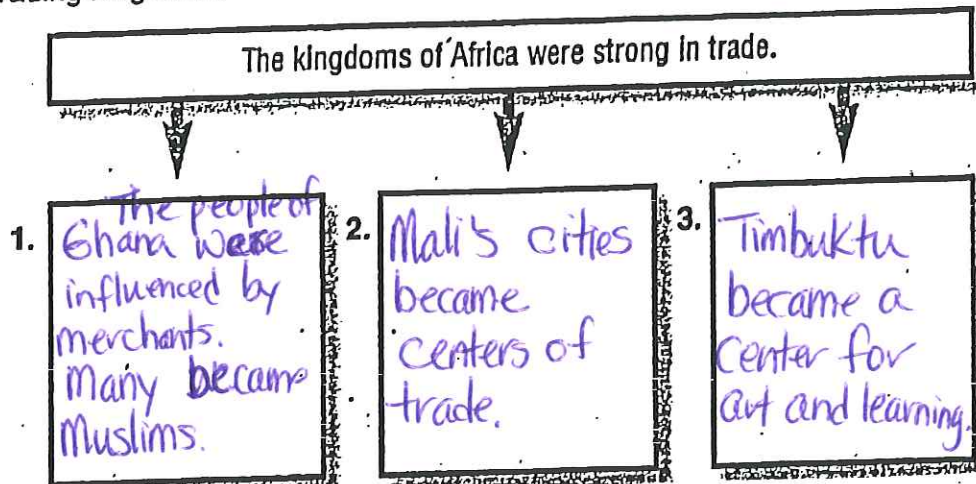 The kingdoms of Africa were strong in trade.
1.
The people of
Ghana were
influenced by
merchants.
Many became
Muslims.
2.
Mali's cities
became
centers of
trade.
3.
Timbuktu
became a
center for
art and learning.